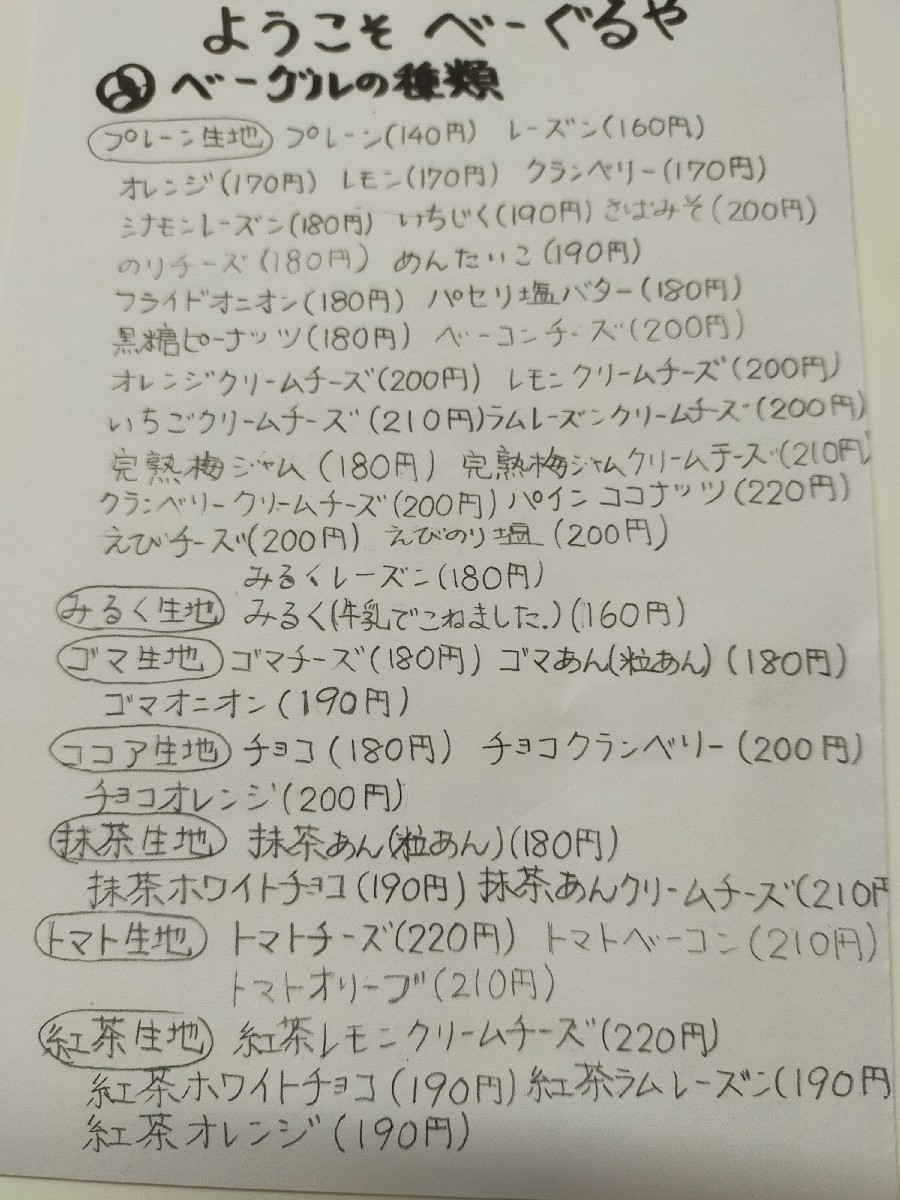 ようこそ べーぐるや
ベーグルの種類
プレーン生地 プレーン(140円) レーズン(160円)
オレンジ(170円) レモン(170円) クランベリー(170円)
シナモンレーズン(180円) いちじく(190円) さばみそ(200円)
のりチーズ(180円) めんたいこ(190円)
フライドオニオン(180円) パセリ塩バター(180円)
黒糖ピーナッツ(180円) ベーコンチーズ(200円)
オレンジクリームチーズ(200円) レモンクリームチーズ(200円)
いちごクリームチーズ(210円)ラムレーズンクリームチーズ(200円)
完熟梅ジャム(180円) 完熟梅ジャムクリームチーズ(210円)
クランベリークリームチーズ(200円) パインココナッツ(220円)
えびチーズ(200円) えびのり塩(200円)
みるくレーズン(180円)
みるく生地 みるく(牛乳でこねました.)(160円)
ゴマ生地 ゴマチーズ(180円) ゴマあん(粒あん)(180円)
ゴマオニオン(190円)
ココア生地 チョコ(180円) チョコクランベリー(200円)
チョコオレンジ(200円)
抹茶生地 抹茶あん(粒あん)(180円)
抹茶ホワイトチョコ(190円) 抹茶あんクリームチーズ(210円
トマト生地 トマトチーズ(220円) トマトベーコン(210円)
トマトオリーブ(210円)
紅茶生地 紅茶レモンクリームチーズ(220円)
紅茶ホワイトチョコ(190円) 紅茶ラムレーズン(190円
紅茶オレンジ(190円)